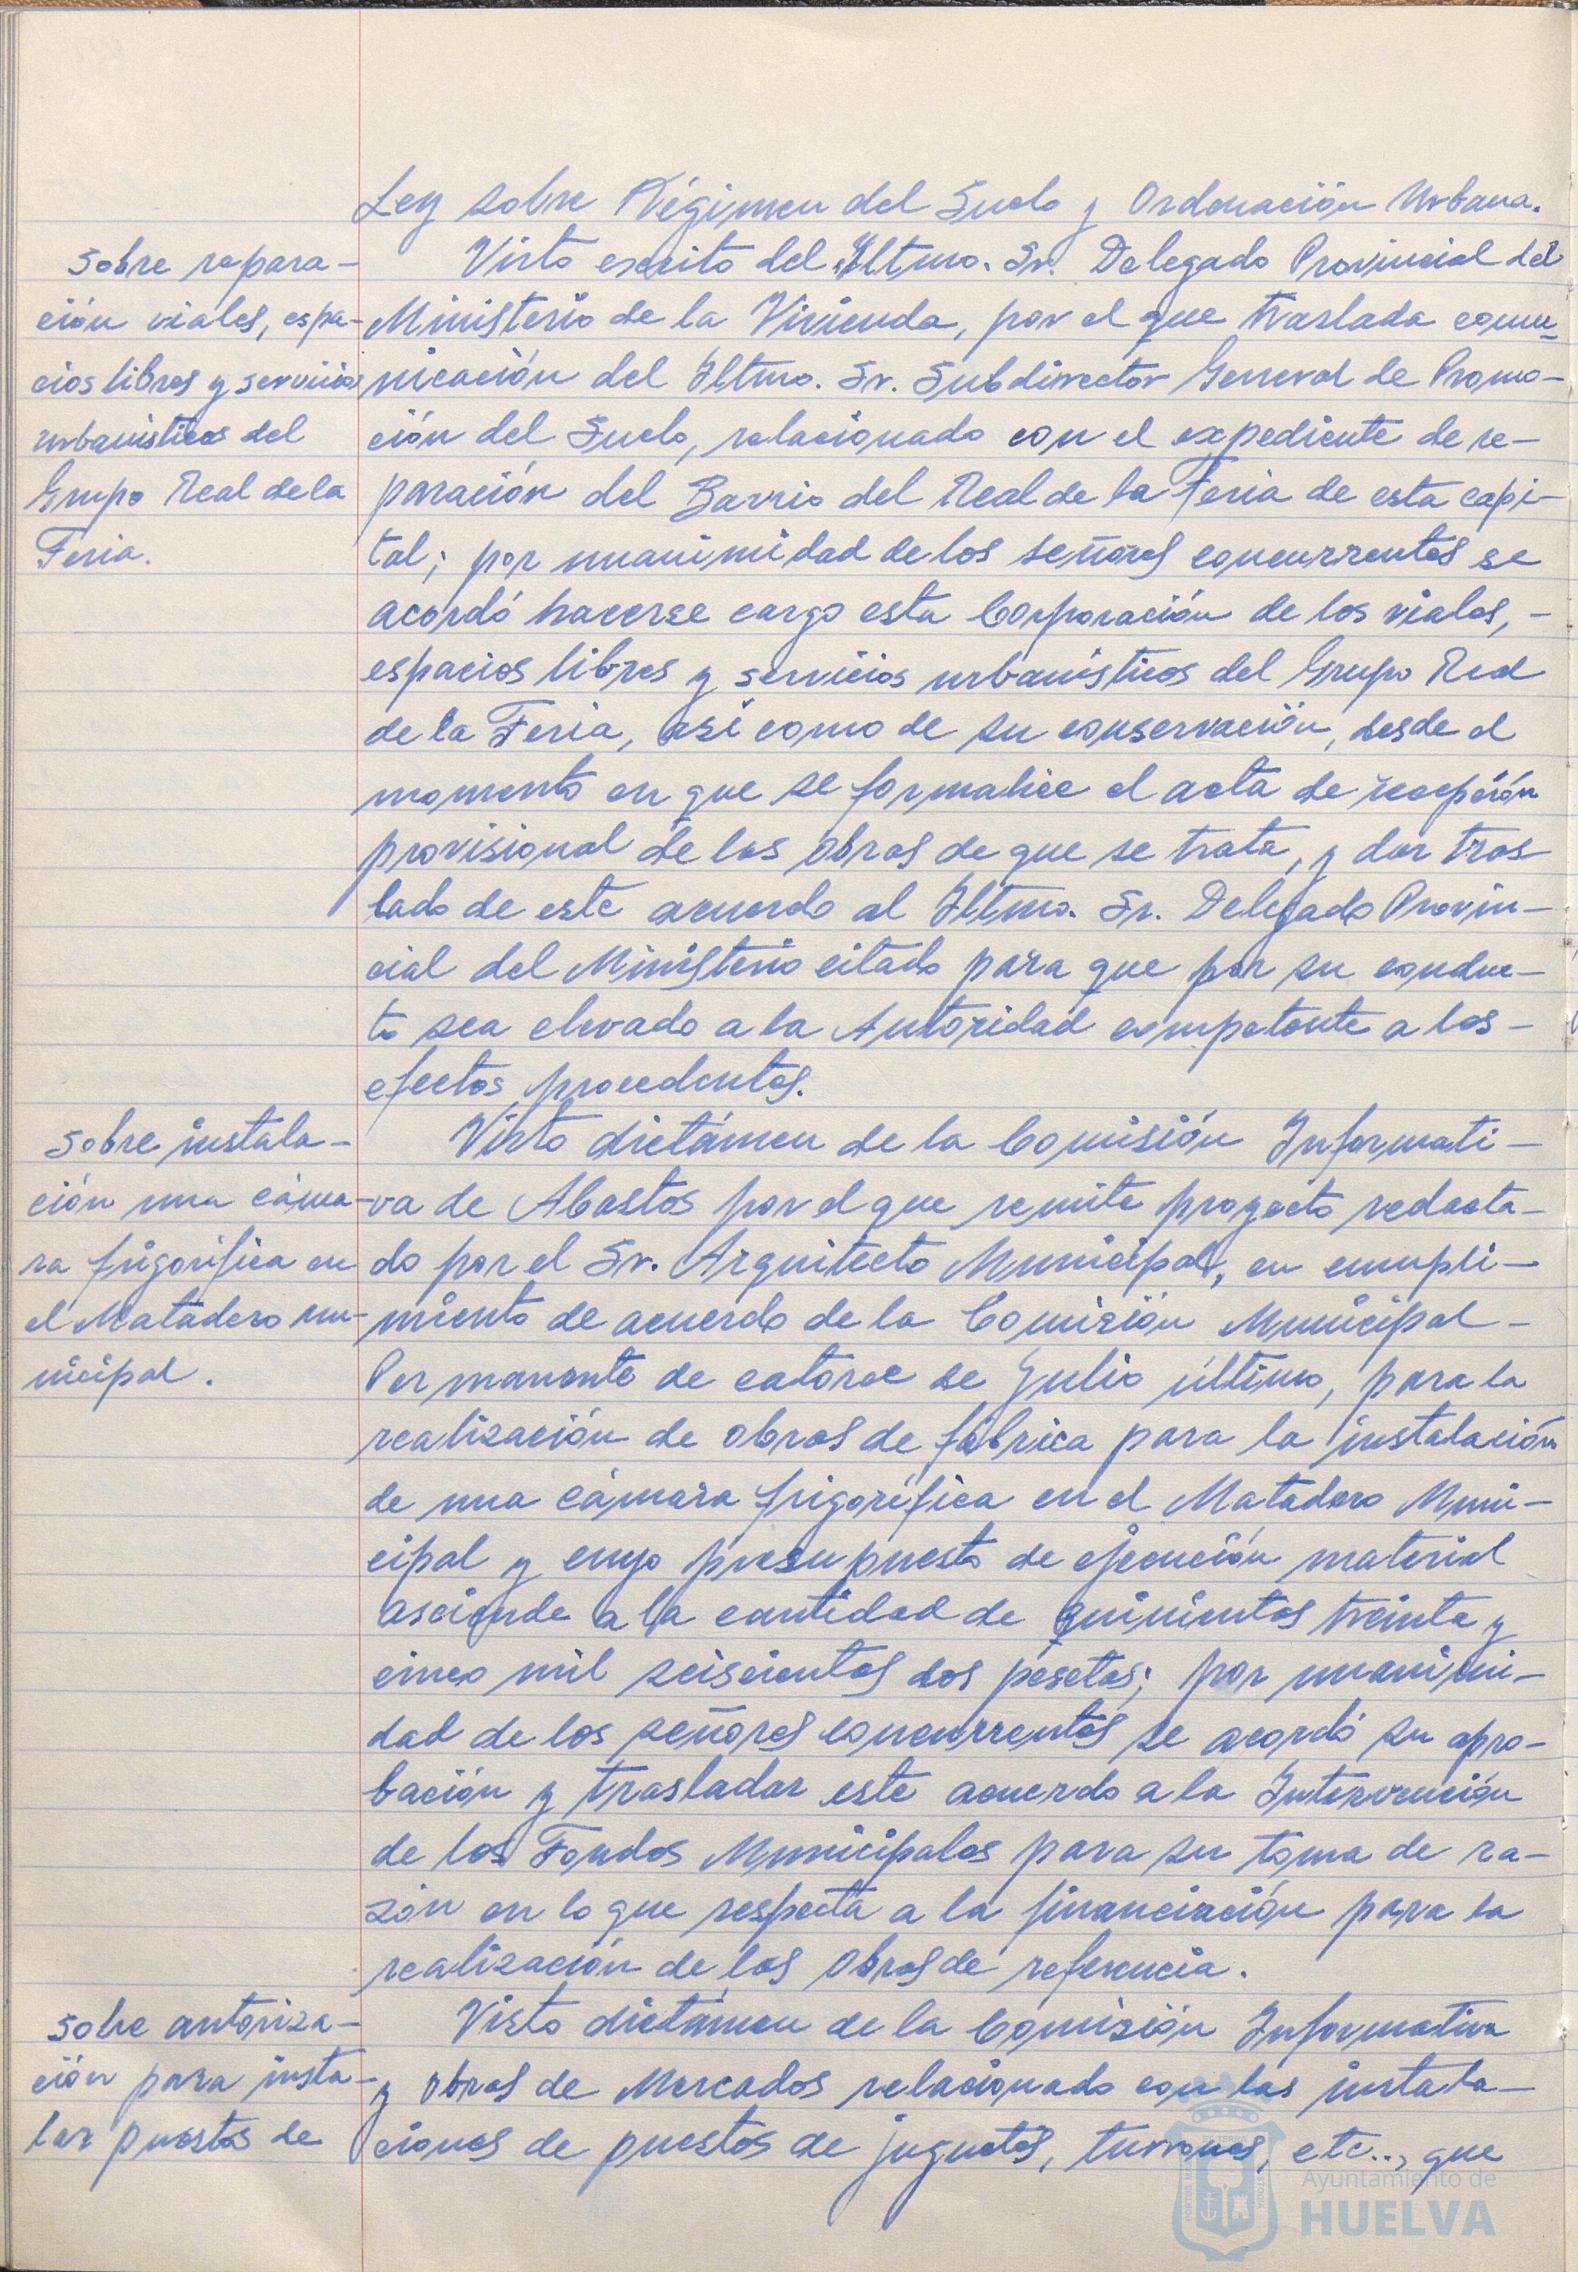 Ley sobre Régimen del Suelo y Ordenación Urbana.
Sobre repara-
ción viales, espa-
cios libres y servicios
urbanísticos del
Grupo Real de la
Feria.
Visto escrito del Iltmo. Sr. Delegado Provincial del
Ministerio de la Vivienda, por el que traslada comu-
nicación del Iltmo. Sr. Subdirector General de Promo-
ción del Suelo, relacionado con el expediente de re-
paración del Barrio del Real de la Feria de esta capi-
tal; por unanimidad de los señores concurrentes se
acordó hacerse cargo esta Corporación de los viales, -
espacios libres y servicios urbanísticos del Grupo Real
de la Feria, así como de su conservación, desde el
momento en que se formalice el acta de recepción
provisional de las obras de que se trata, y dar tras-
lado de este acuerdo al Iltmo. Sr. Delegado Provin-
cial del Ministerio citado para que por su conduc-
to sea elevado a la Autoridad competente a los -
efectos procedentes.
Sobre instala-
ción una cáma-
ra frigorífica en
el Matadero mu-
nicipal.
Visto dictámen de la Comisión Informati-
va de Abastos por el que remite proyecto redacta-
do por el Sr. Arquitecto Municipal, en cumpli-
miento de acuerdo de la Comisión Municipal -
Permanente de catorce de Julio último, para la
realización de obras de fábrica para la instalación
de una cámara frigorífica en el Matadero Muni-
cipal y cuyo presupuesto de ejecución material
asciende a la cantidad de quinientas treinta y
cinco mil seiscientas dos pesetas; por unanimi-
dad de los señores concurrentes se acordó su apro-
bación y trasladar este acuerdo a la Intervención
de los Fondos Municipales para su toma de ra-
zón en lo que respecta a la financiación para la
realización de las obras de referencia.
Sobre autoriza-
ción para insta-
lar puestos de
Visto dictámen de la Comisión Informativa
y obras de Mercados relacionado con las instala-
ciones de puestos de juguetes, turrones, etc.., que
Ayuntamiento de
HUELVA